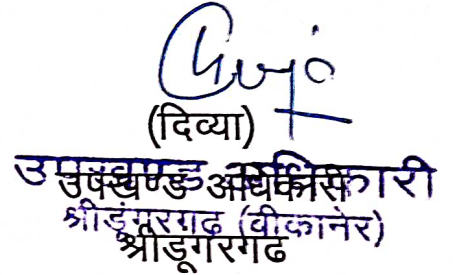 (दिव्या)
उपखण्ड अधिकारी
उपखण्ड अधिकारी
श्रीडूंगरगढ (बीकानेर)
श्रीडूंगरगढ